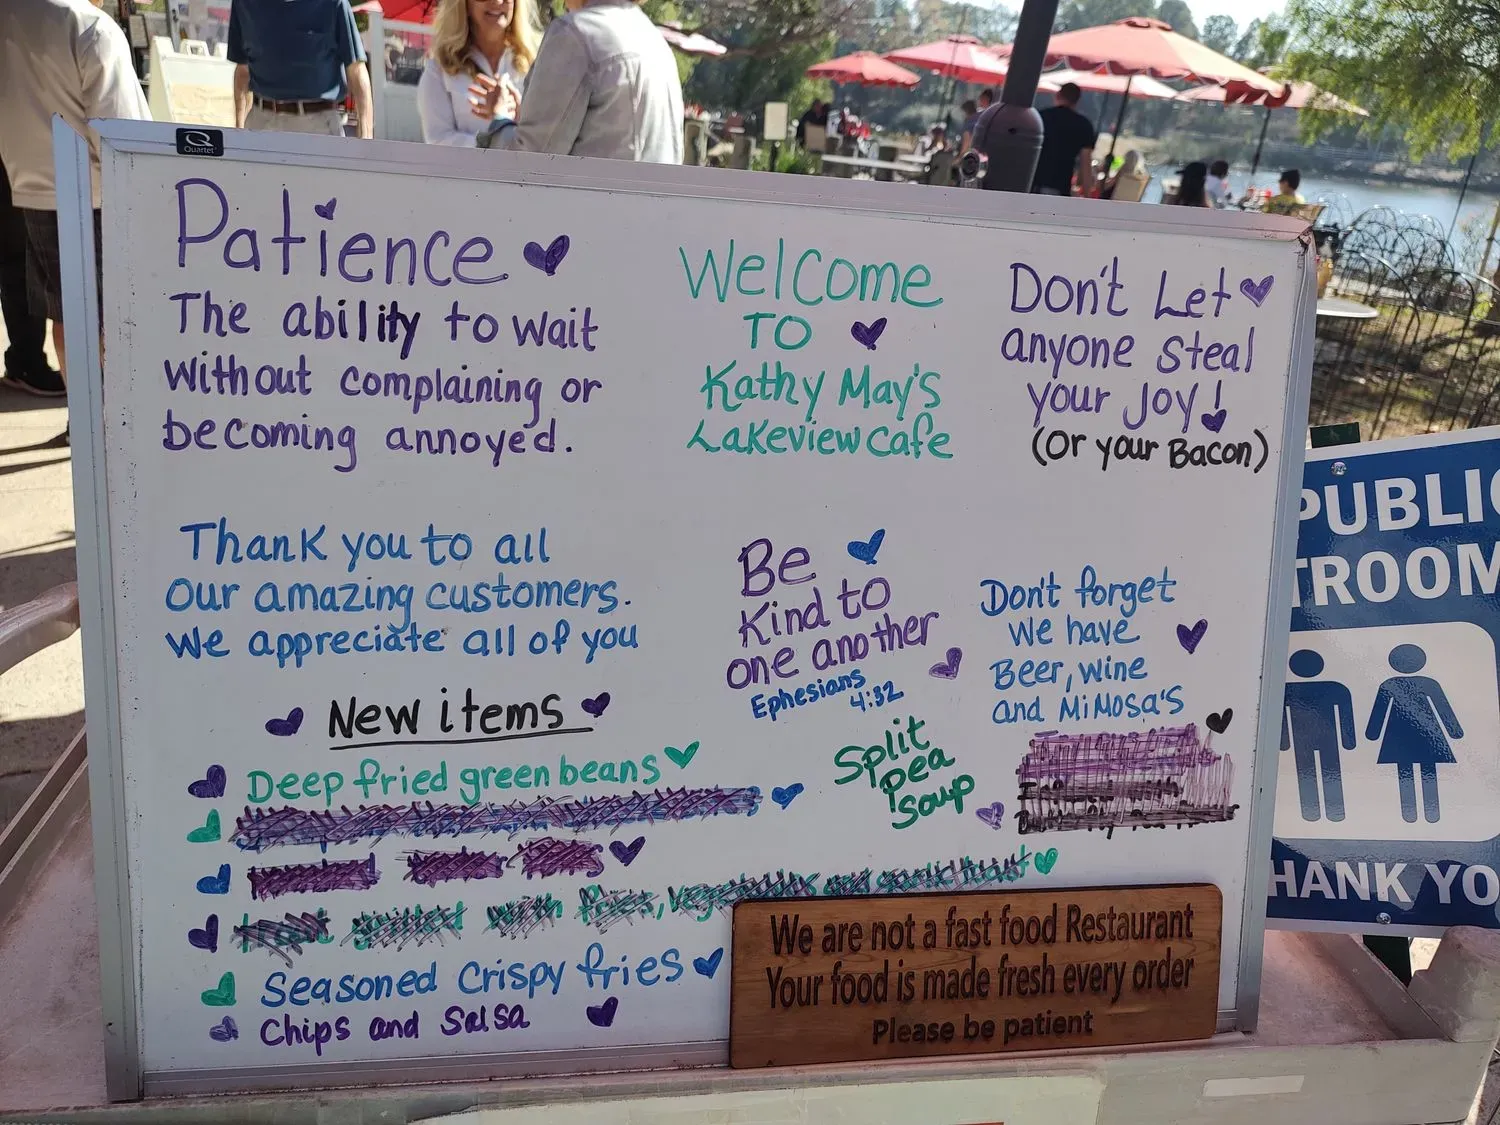 Quartet
Patience
The ability to wait
without complaining or
becoming annoyed.
Welcome
To
Kathy May's
Lakeview Cafe
Don't Let
anyone steal
your Joy!
(Or your Bacon)
Thank you to all
our amazing customers.
We appreciate all of you
Be
Kind to
one another
Ephesians
4:32
Don't forget
We have
Beer, wine
and MiMosa's
New items
Deep fried green beans
with fries, vegetables and
Seasoned Crispy fries
Chips and Salsa
Split
Pea
Soup
We are not a fast food Restaurant
Your food is made fresh every order
Please be patient
PUBLIC
TROOM
HANK YO